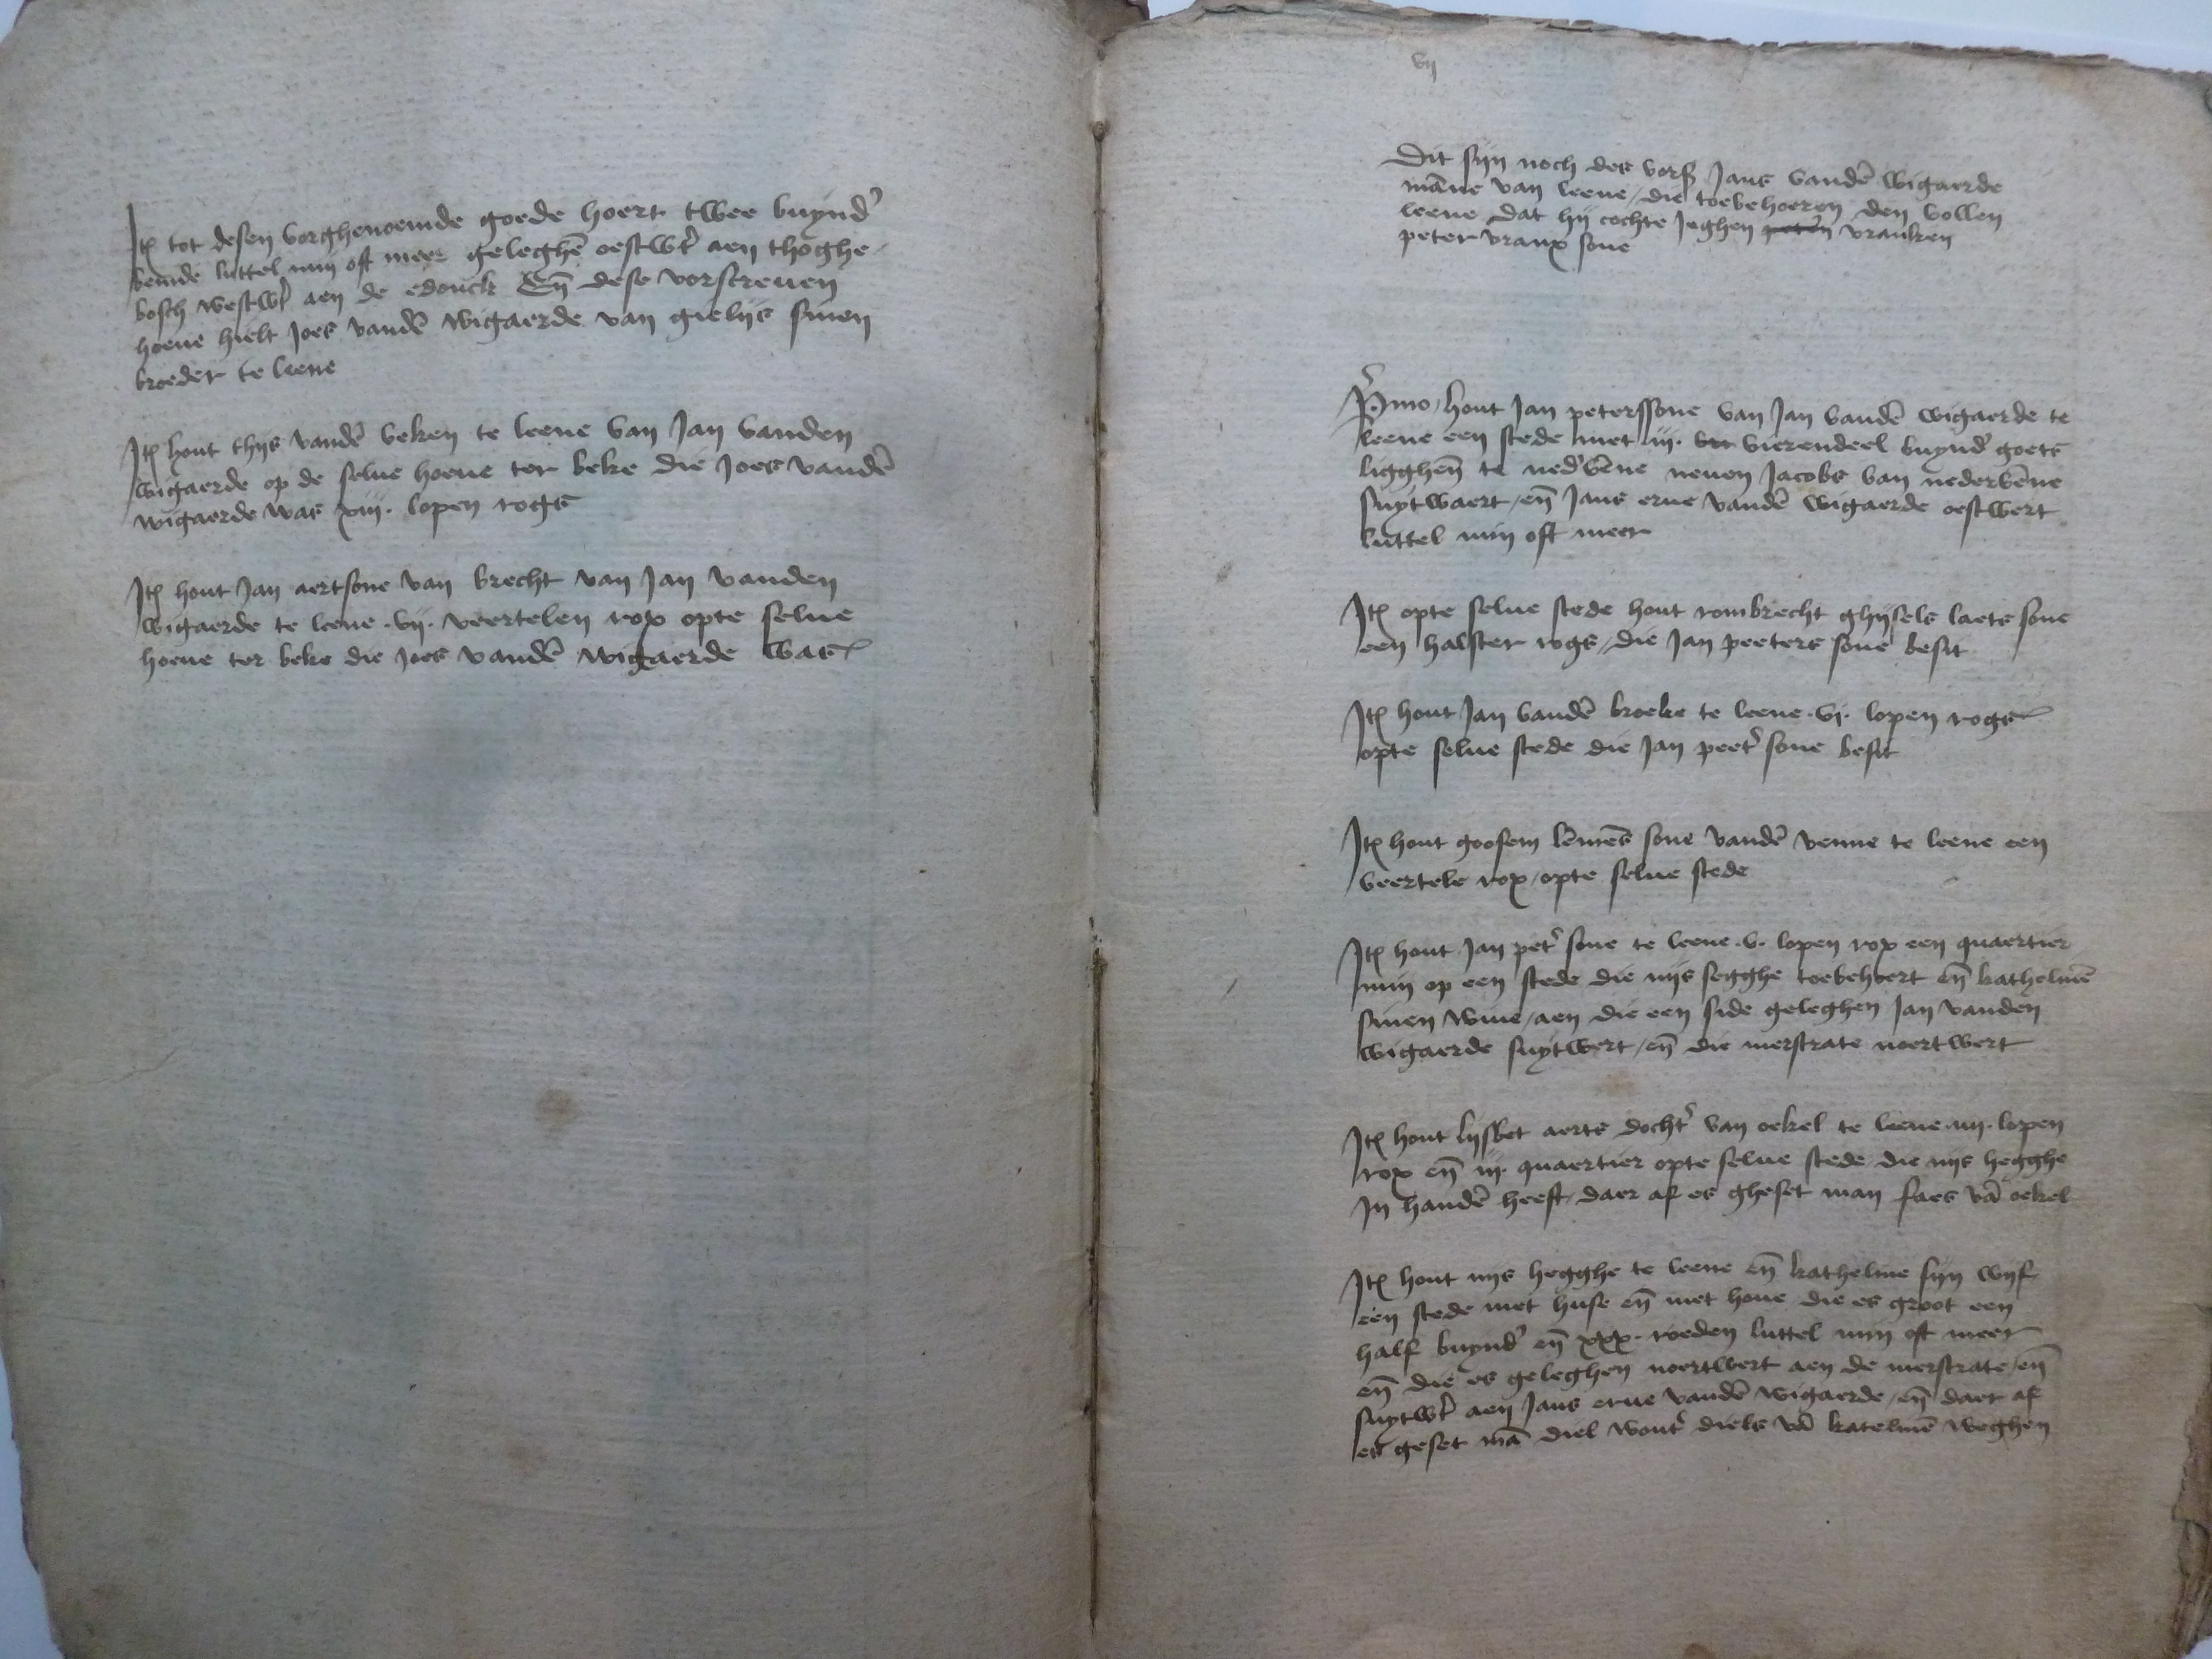 Itē tot desen vorghenoemde goede hoert twee buynd'
bemde luttel min oft meer geleghē oestwt' aen thoghe
bosch westwt' aen de edonck Eñ dese vorscreuen
hoeue hielt Joes vandē wigaerde van gielijs sinen
broeder te leene
Itē hout thijs vandē beken te leene van Jan vanden
wigaerde op de selue hoeue ter beke die Joes vandē
wigaerde was xiij. lopen rogs
Itē hout Jan aertsone van brecht van Jan vanden
wigaerde te leene .vij. veertelen rox opte selue
hoeue ter beke die Joes vandē wigaerde was
vij
Dit sijn noch des vors Jans vandē wigaerde
māne van leene / die toebehoeren den vollen
leene dat hij cochte Jeghen petern vranken
peter vranx sone
P'mo / hout Jan peterssone van Jan vandē wigaerde te
leene een stede met iij. vierendeel buynd' goets
ligghēn te ned'vēne neuen Jacobs van nedervēne
suytwaert / eñ Jans erue vandē wigaerde oestwert
luttel min oft meer
Itē opte selue stede hout rombrecht ghijsels laets sone
een halster rogs / die Jan peeters sone besit
Itē hout Jan vandē broeke te leene .vj. lopen rogs
opte selue stede die Jan peet' sone besit
Itē hout goosem lēmēs sone vandē venne te leene een
veertele rox / opte selue stede
Itē hout Jan pet' sone te leene .v. lopen rox een quaertier
min op een stede die nijs segghe toebehoert eñ kathelinē
sinen wiue / aen die een side geleghen Jan vanden
wigaerde suytwert / eñ die merstrate noertwert
Itē hout lijsbet aerts docht' van oekel te leene .iiij. lopen
rox eñ iij. quaertier opte selue stede die nijs hegghe
In handē heeft / daer af es gheset man faes vā oekel
Itē hout nijs hegghe te leene eñ katheline sijn wijf
een stede met huse eñ met houe die es groot een
half buynd' eñ xxx. roeden luttel min oft meer
eñ die es geleghen noertwert aen de merstrate / eñ
suytwt' aen Jans erue vandē wigaerde / eñ daer af
es geset mā diel wout' diels vā katelinē weghen